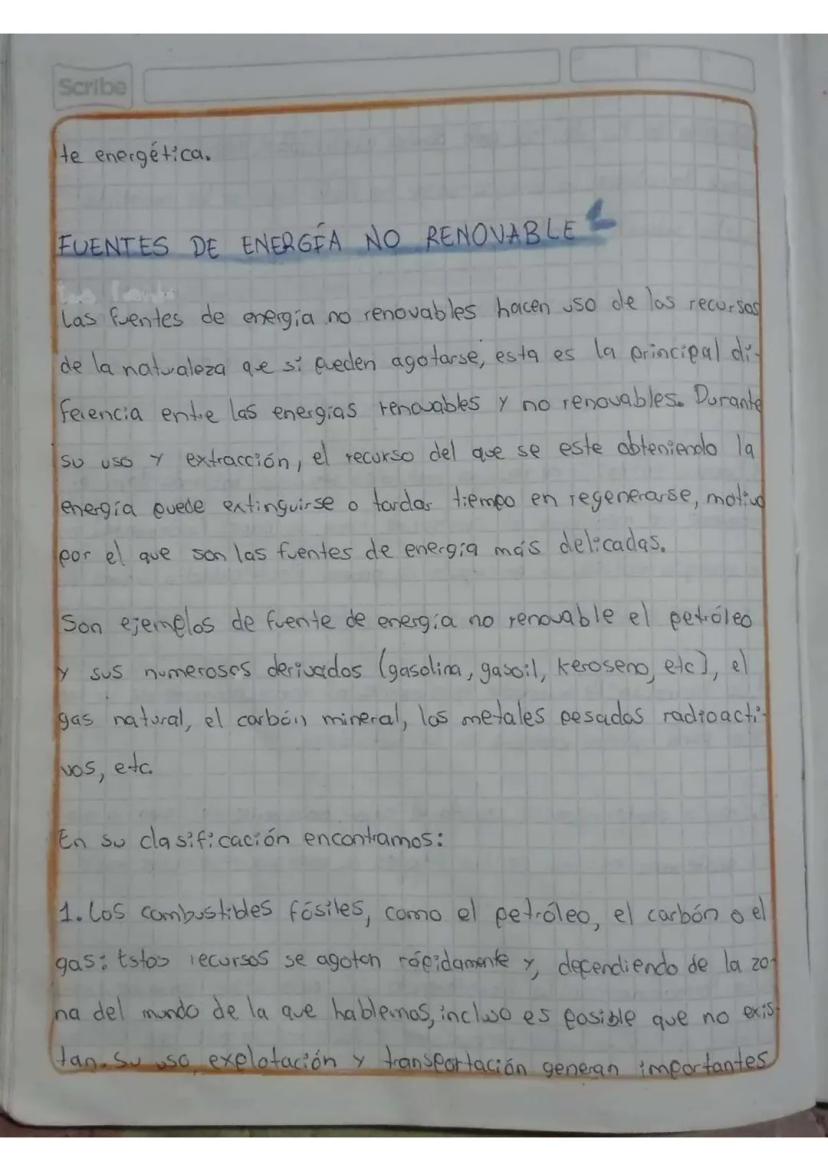 Scribe
te energética.
FUENTES DE ENERGÍA NO RENOVABLE
Las fuentes de energía no renovables hacen uso de los recursos
de la naturaleza que sí pueden agotarse, esta es la principal di-
ferencia entre las energías renovables y no renovables. Durante
su uso y extracción, el recurso del que se este obteniendo la
energía puede extinguirse o tardar tiempo en regenerarse, motivo
por el que son las fuentes de energía más delicadas.
Son ejemplos de fuente de energía no renovable el petróleo
y sus numerosos derivados (gasolina, gasoil, keroseno, etc), el
gas natural, el carbón mineral, los metales pesados radioacti-
vos, etc.
En su clasificación encontramos:
1. Los combustibles fósiles, como el petróleo, el carbón o el
gas: Estos recursos se agotan rápidamente y, dependiendo de la zo-
na del mundo de la que hablemos, incluso es posible que no exis-
tan. Su uso, explotación y transportación generan importantes